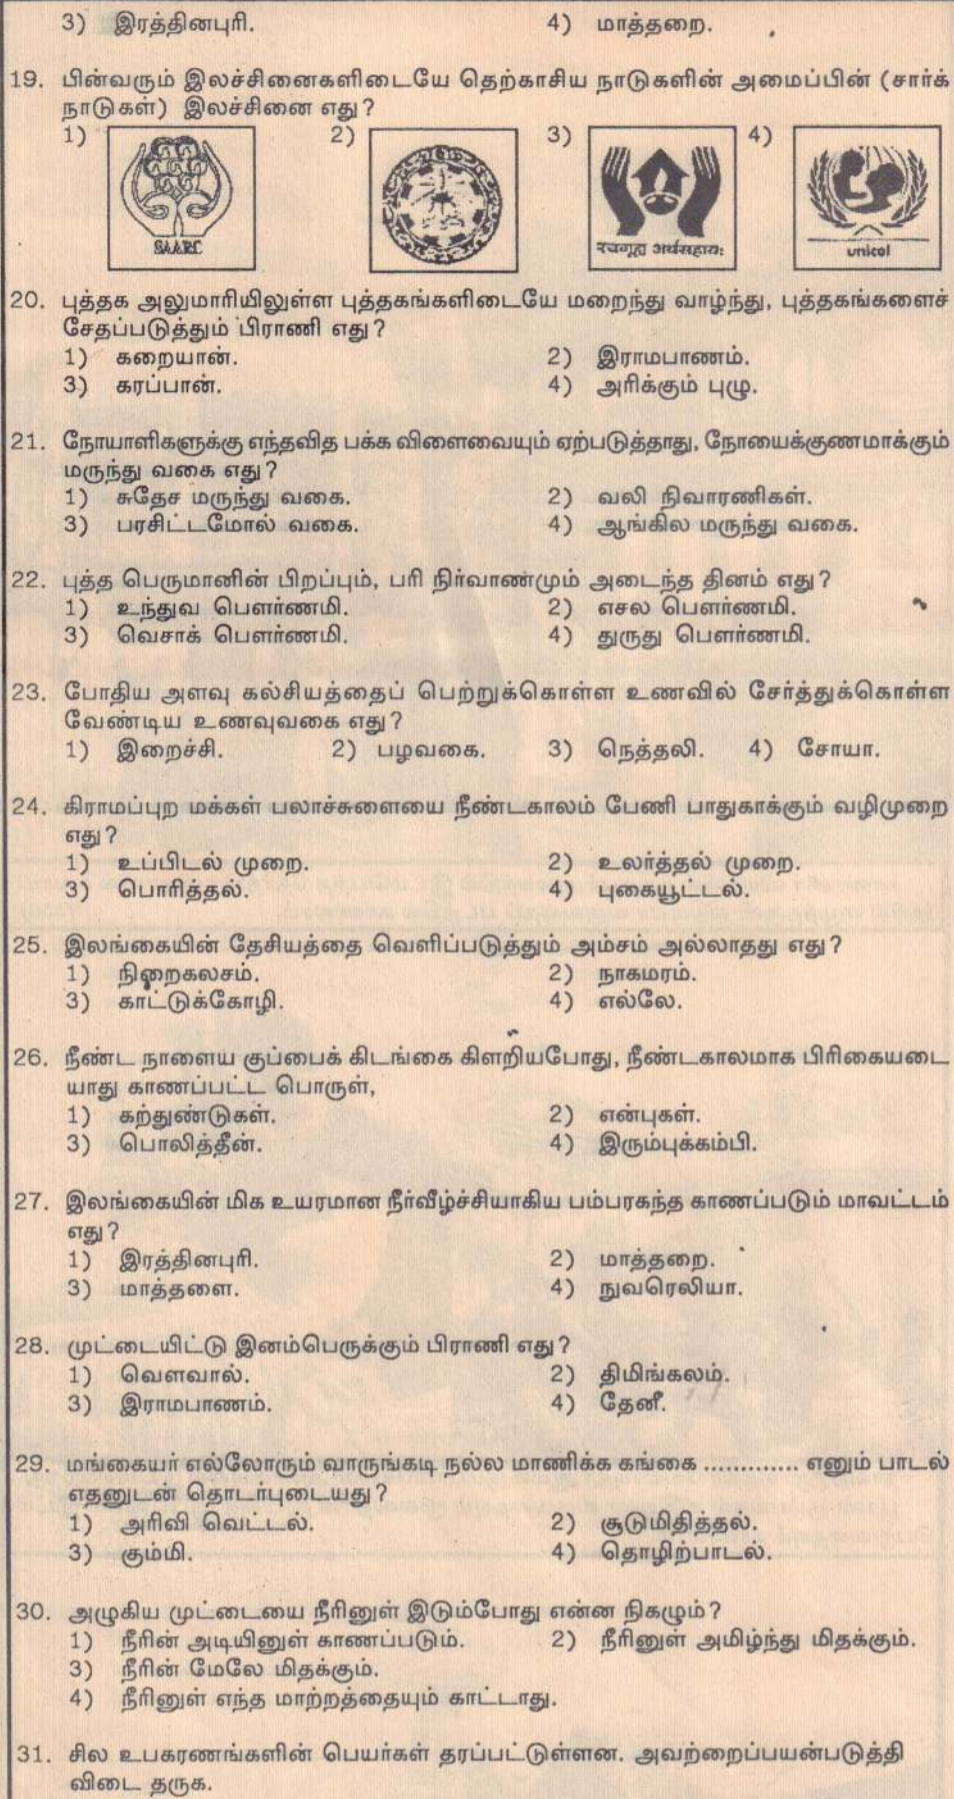 3) இரத்தினபுரி. 4) மாத்தறை.
19. பின்வரும் இலச்சினைகளிடையே தெற்காசிய நாடுகளின் அமைப்பின் (சார்க்
நாடுகள்) இலச்சினை எது?
1) 2) 3) 4)
SAARC
unicef
20. புத்தக அலுமாரியிலுள்ள புத்தகங்களிடையே மறைந்து வாழ்ந்து, புத்தகங்களைச்
சேதப்படுத்தும் பிராணி எது?
1) கறையான். 2) இராமபாணம்.
3) கரப்பான். 4) அரிக்கும் புழு.
21. நோயாளிகளுக்கு எந்தவித பக்க விளைவையும் ஏற்படுத்தாது, நோயைக்குணமாக்கும்
மருந்து வகை எது?
1) சுதேச மருந்து வகை. 2) வலி நிவாரணிகள்.
3) பரசிட்டமோல் வகை. 4) ஆங்கில மருந்து வகை.
22. புத்த பெருமானின் பிறப்பும், பரி நிர்வாணமும் அடைந்த தினம் எது?
1) உந்துவ பௌர்ணமி. 2) எசல பௌர்ணமி.
3) வெசாக் பௌர்ணமி. 4) துருது பௌர்ணமி.
23. போதிய அளவு கல்சியத்தைப் பெற்றுக்கொள்ள உணவில் சேர்த்துக்கொள்ள
வேண்டிய உணவுவகை எது?
1) இறைச்சி. 2) பழவகை. 3) நெத்தலி. 4) சோயா.
24. கிராமப்புற மக்கள் பலாச்சுளையை நீண்டகாலம் பேணி பாதுகாக்கும் வழிமுறை
எது?
1) உப்பிடல் முறை. 2) உலர்த்தல் முறை.
3) பொரித்தல். 4) புகையூட்டல்.
25. இலங்கையின் தேசியத்தை வெளிப்படுத்தும் அம்சம் அல்லாதது எது?
1) நிறைகலசம். 2) நாகமரம்.
3) காட்டுக்கோழி. 4) எல்லே.
26. நீண்ட நாளைய குப்பைக் கிடங்கை கிளறியபோது, நீண்டகாலமாக பிரிகையடை
யாது காணப்பட்ட பொருள்,
1) கற்துண்டுகள். 2) என்புகள்.
3) பொலித்தீன். 4) இரும்புக்கம்பி.
27. இலங்கையின் மிக உயரமான நீர்வீழ்ச்சியாகிய பம்பரகந்த காணப்படும் மாவட்டம்
எது?
1) இரத்தினபுரி. 2) மாத்தறை.
3) மாத்தளை. 4) நுவரெலியா.
28. முட்டையிட்டு இனம்பெருக்கும் பிராணி எது?
1) வௌவால். 2) திமிங்கலம்.
3) இராமபாணம். 4) தேனீ.
29. மங்கையர் எல்லோரும் வாருங்கடி நல்ல மாணிக்க கங்கை ............. எனும் பாடல்
எதனுடன் தொடர்புடையது?
1) அரிவி வெட்டல். 2) சூடுமிதித்தல்.
3) கும்மி. 4) தொழிற்பாடல்.
30. அழுகிய முட்டையை நீரினுள் இடும்போது என்ன நிகழும்?
1) நீரின் அடியினுள் காணப்படும். 2) நீரினுள் அமிழ்ந்து மிதக்கும்.
3) நீரின் மேலே மிதக்கும்.
4) நீரினுள் எந்த மாற்றத்தையும் காட்டாது.
31. சில உபகரணங்களின் பெயர்கள் தரப்பட்டுள்ளன. அவற்றைப்பயன்படுத்தி
விடை தருக.